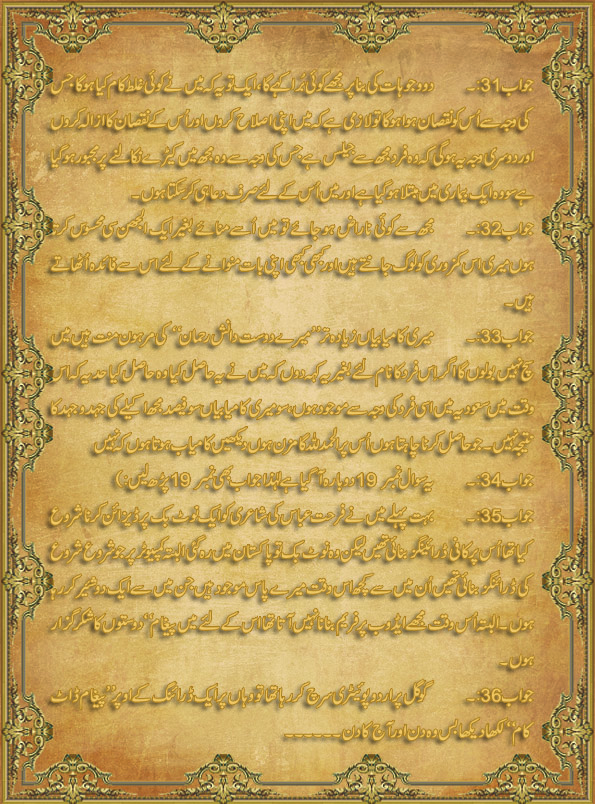 جواب31:۔ دو وجوہات کی بنا پر مجھے کوئی بُرا کہے گا، ایک تو یہ کہ میں نے کوئی غلط کام کیا ہوگا جس
کی وجہ سے اُس کو نقصان ہوا ہوگا تو لازمی ہے کہ میں اپنی اصلاح کروں اور اُس کے نقصان کا ازالہ کروں
اور دوسری وجہ یہ ہوگی کہ وہ فرد مجھ سے جیلس ہے جس کی وجہ سے وہ مجھ میں کیڑے نکالنے پر مجبور ہو گیا
ہے سو وہ ایک بیماری میں مبتلا ہو گیا ہے اور میں اُس کے لئے صرف دعا ہی کر سکتا ہوں۔
جواب32:۔ مجھ سے کوئی ناراض ہو جائے تو میں اُسے منائے بغیر ایک الجھن سی محسوس کرتا
ہوں میری اس کمزوری کو لوگ جانتے ہیں اور کبھی کبھی اپنی بات منوانے کے لئے اس سے فائدہ اُٹھاتے
ہیں۔
جواب33:۔ میری کامیابیاں زیادہ تر ’’میرے دوست دانش رحمان‘‘ کی مرہون منت ہیں میں
سچ نہیں بولوں گا اگر اس فرد کا نام لئے بغیر یہ کہہ دوں کہ میں نے یہ حاصل کیا وہ حاصل کیا حد یہ کہ اس
وقت میں سعودیہ میں اسی فرد کی وجہ سے موجود ہوں، سو میری کامیابیاں سو فیصد مجھ اکیلے کی جہد و جہد کا
نتیجہ نہیں۔ جو حاصل کرنا چاہتا ہوں اُس پر الحمد للہ گامزن ہوں دیکھیں کامیاب ہوتا ہوں کہ نہیں
جواب34:۔ یہ سوال نمبر 19 دوبارہ آ گیا ہے لہٰذا جواب بھی نمبر 19 پڑھ لیں :)
جواب35:۔ بہت پہلے میں نے فرحت عباس کی شاعری کو ایک نوٹ بک پر ڈیزائن کرنا شروع
کیا تھا اُس پر کافی ڈرائینگز بنائی تھیں لیکن وہ نوٹ بک تو پاکستان میں رہ گئی البتہ کمپیوٹر پر جو شروع شروع
کی ڈرائنگز بنائی تھیں اُن میں سے کچھ اس وقت میرے پاس موجود ہیں جن میں سے ایک دو شیئر کر رہا
ہوں۔ البتہ اُس وقت مجھے ایڈوب پر فریم بنانا نہیں آتا تھا اس کے لئے میں پیغام’’ دوستوں کا شکر گزار
ہوں۔
جواب36:۔ گوگل پر اردو پوئیٹری سرچ کر رہا تھا تو وہاں پر ایک ڈرائنگ کے اوپر ’’پیغام ڈاٹ
کام‘‘ لکھا دیکھا بس وہ دن اور آج کا دن۔۔۔۔۔۔